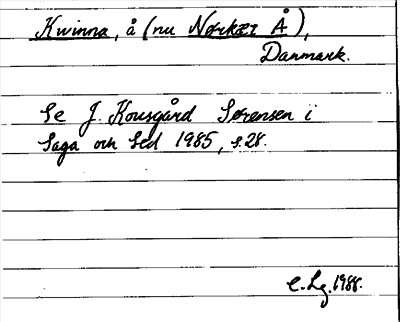 Kwinna, å (nu Nørkær Å),
Danmark.
Se J. Kousgård Sørensen i
Saga och Sed 1985, s. 28.
C. Lg. 1988.